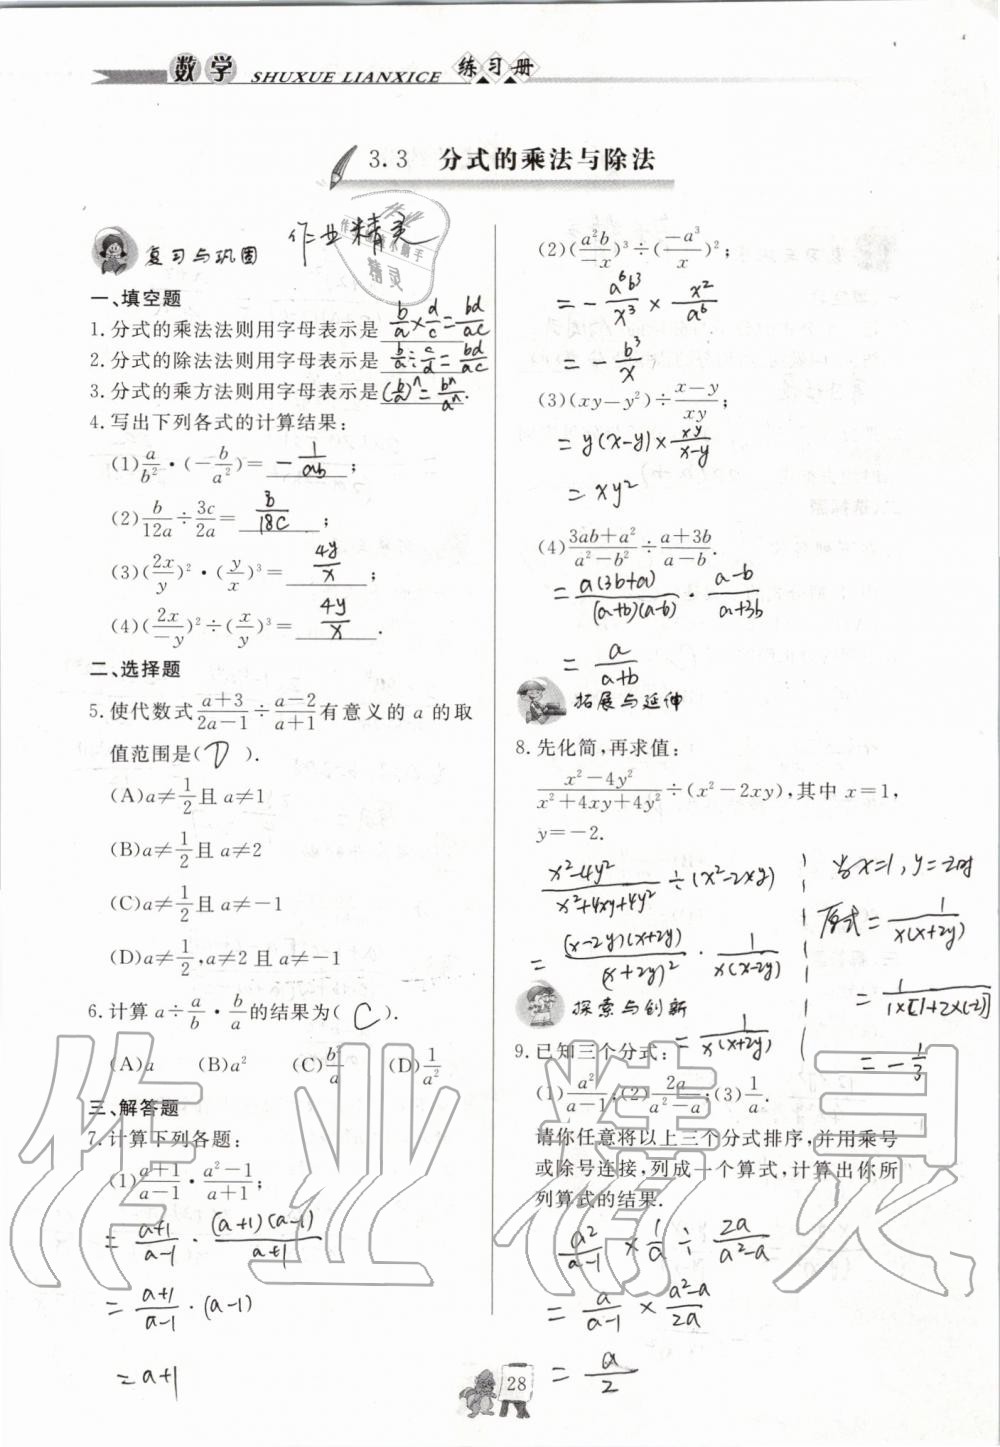 数学 SHUXUE LIANXICE 练习册
3.3 分式的乘法与除法
复习与巩固
作业精灵
一、填空题
1.分式的乘法法则用字母表示是 b/a×d/c=bd/ac
2.分式的除法法则用字母表示是 b/a÷c/d=bd/ac
3.分式的乘方法则用字母表示是(b/a)ⁿ=bⁿ/aⁿ.
4.写出下列各式的计算结果:
(1)a/b²·(-b/a²)= -1/ab ;
(2)b/12a÷3c/2a= b/18c ;
(3)(2x/y)²·(y/x)³= 4y/x ;
(4)(2x/-y)²÷(x/y)³= 4y/x .
二、选择题
5.使代数式(a+3)/(2a-1)÷(a-2)/(a+1)有意义的 a 的取
值范围是( D ).
(A)a≠1/2且 a≠1
(B)a≠1/2且 a≠2
(C)a≠1/2且 a≠-1
(D)a≠1/2,a≠2 且 a≠-1
6.计算 a÷a/b·b/a的结果为( C ).
(A)a (B)a² (C)b²/a (D)1/a²
三、解答题
7.计算下列各题:
(1)(a+1)/(a-1)·(a²-1)/(a+1);
=(a+1)/(a-1)·(a+1)(a-1)/(a+1)
=(a+1)/(a-1)·(a-1)
=a+1
(2)(a²b/-x)³÷(-a³/x)²;
=-a⁶b³/x³×x²/a⁶
=-b³/x
(3)(xy-y²)÷(x-y)/xy;
=y(x-y)×xy/(x-y)
=xy²
(4)(3ab+a²)/(a²-b²)÷(a+3b)/(a-b).
=a(3b+a)/(a+b)(a-b)·(a-b)/(a+3b)
=a/(a+b)
拓展与延伸
8.先化简,再求值:
(x²-4y²)/(x²+4xy+4y²)÷(x²-2xy),其中 x=1,
y=-2.
(x²-4y²)/(x²+4xy+4y²)÷(x²-2xy)
=(x-2y)(x+2y)/(x+2y)²·1/x(x-2y)
=1/x(x+2y)
当x=1,y=2时
原式=1/x(x+2y)
=1/1×[1+2×(-2)]
=-1/3
探索与创新
9.已知三个分式:
(1)a²/(a-1);(2)2a/(a²-a);(3)1/a.
请你任意将以上三个分式排序,并用乘号
或除号连接,列成一个算式,计算出你所
列算式的结果.
a²/(a-1)×1/a÷2a/(a²-a)
=a/(a-1)×(a²-a)/2a
=a/2
28
作业精灵